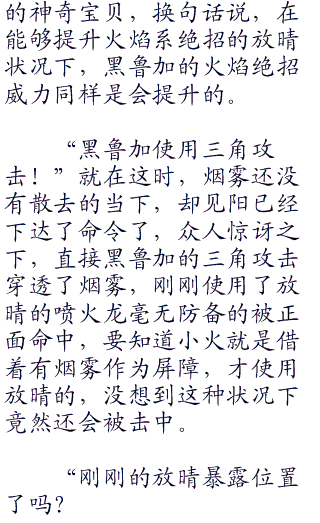 的神奇宝贝，换句话说，在
能够提升火焰系绝招的放晴
状况下，黑鲁加的火焰绝招
威力同样是会提升的。
“黑鲁加使用三角攻
击！”就在这时，烟雾还没
有散去的当下，却见阳已经
下达了命令了，众人惊讶之
下，直接黑鲁加的三角攻击
穿透了烟雾，刚刚使用了放
晴的喷火龙毫无防备的被正
面命中，要知道小火就是借
着有烟雾作为屏障，才使用
放晴的，没想到这种状况下
竟然还会被击中。
“刚刚的放晴暴露位置
了吗？